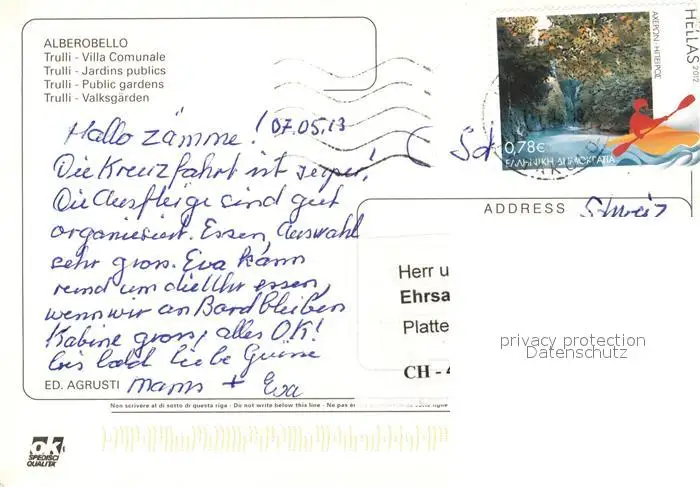 ALBEROBELLO
Trulli - Villa Comunale
Trulli - Jardins publics
Trulli - Public gardens
Trulli - Valksgärden
Hallo zämme! 07.05.13
Die Kreuzfahrt ist super!
Die Ausflüge sind gut
organisiert. Essen, Auswahl
sehr gross. Eva kann
rund um die Uhr essen,
wenn wir an Bord bleiben
Kabine gross, alles OK!
bis bald liebe Grüsse
+ Eva
ED. AGRUSTI
Non scrivere al di sotto di questa riga - Do not write below this line - Ne pas
OK
SPEDISCI
QUALITA'
HELLAS 2012
0,78€
ΕΛΛΗΝΙΚΗ ΔΗΜΟΚΡΑΤΙΑ
ADDRESS
Schweiz
Herr u
Ehrsa
Platte
CH - 4
privacy protection
Datenschutz